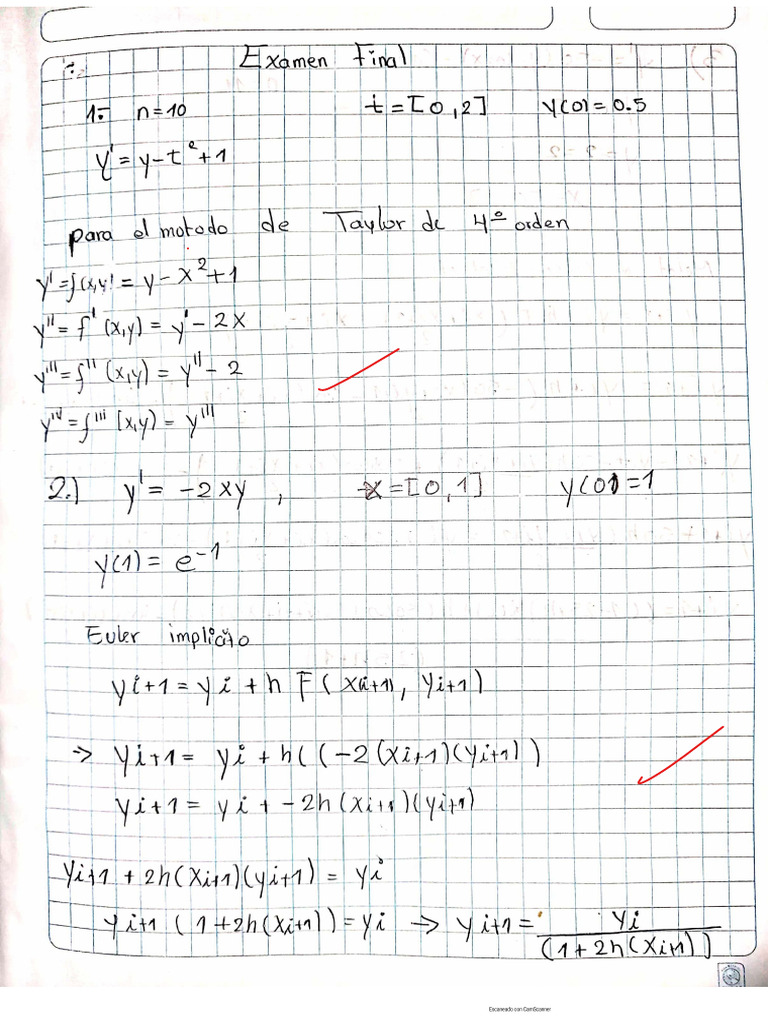 Examen Final
1.- n=10 t=[0,2] y(0)=0.5
y'=y-t²+1
para el motodo de Taylor de 4º orden
y'=f(x,y)=y-x²+1
y''=f'(x,y)=y'-2x
y'''=f''(x,y)=y''-2
y^iv=f'''(x,y)=y'''
2.) y'=-2xy, x=[0,1] y(0)=1
y(1)=e^-1
Euler implicito
yi+1=yi+h F(xi+1), yi+1)
→ yi+1= yi+h((-2(xi+1)(yi+1))
yi+1= yi+-2h(xi+1)(yi+1)
yi+1+2h(xi+1)(yi+1)= yi
yi+1 (1+2h(xi+1))=yi → yi+1= yi/(1+2h(xi+1))
Escaneado con CamScanner